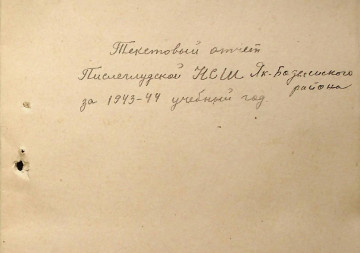 Текстовый отчет
Пислеглудской НСШ Як-Бодьинского
района
за 1943-44 учебный год.